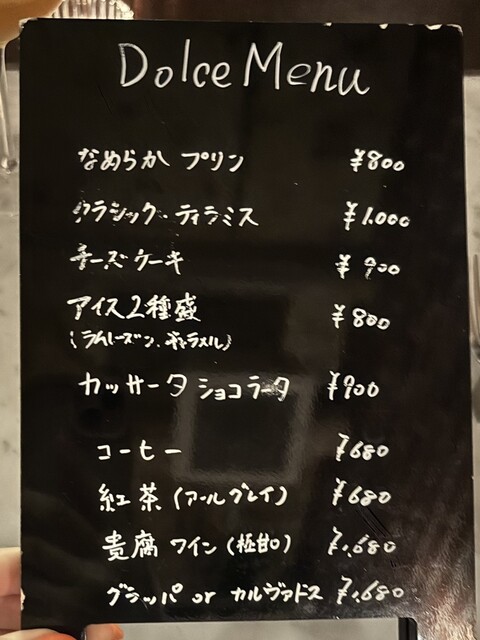 Dolce Menu
なめらか プリン ¥800
クラシック・ティラミス ¥1.000
チーズケーキ ¥900
アイス2種盛 ¥800
(ラムレーズン、キャラメル)
カッサータ ショコラータ ¥900
コーヒー ¥680
紅茶 (アールグレイ) ¥680
貴腐 ワイン (極甘口) ¥1.680
グラッパ or カルヴァドス ¥1.680